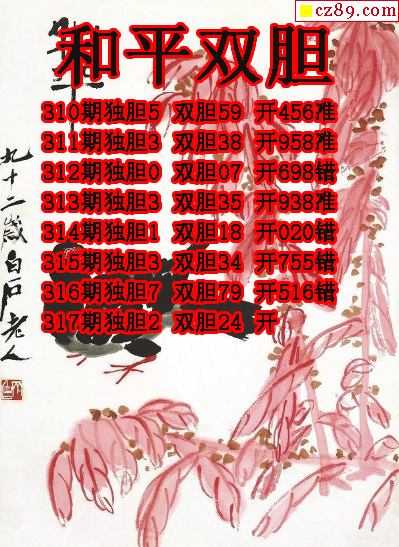 cz89.com
和平双胆
310期独胆5 双胆59 开456准
311期独胆3 双胆38 开958准
312期独胆0 双胆07 开698错
313期独胆3 双胆35 开938准
314期独胆1 双胆18 开020错
315期独胆3 双胆34 开755错
316期独胆7 双胆79 开516错
317期独胆2 双胆24 开
九十二岁白石老人